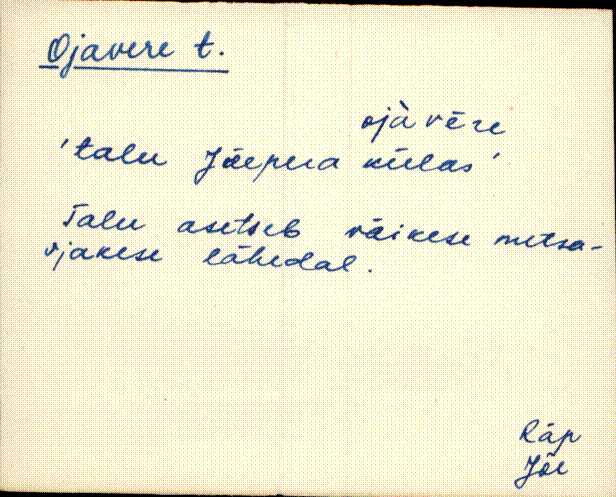 Ojavere t.
ojàvēre
'talu Jõepera külas'
Talu asetseb väikese metsa-
ojakese lähedal.
Räp
Jõe